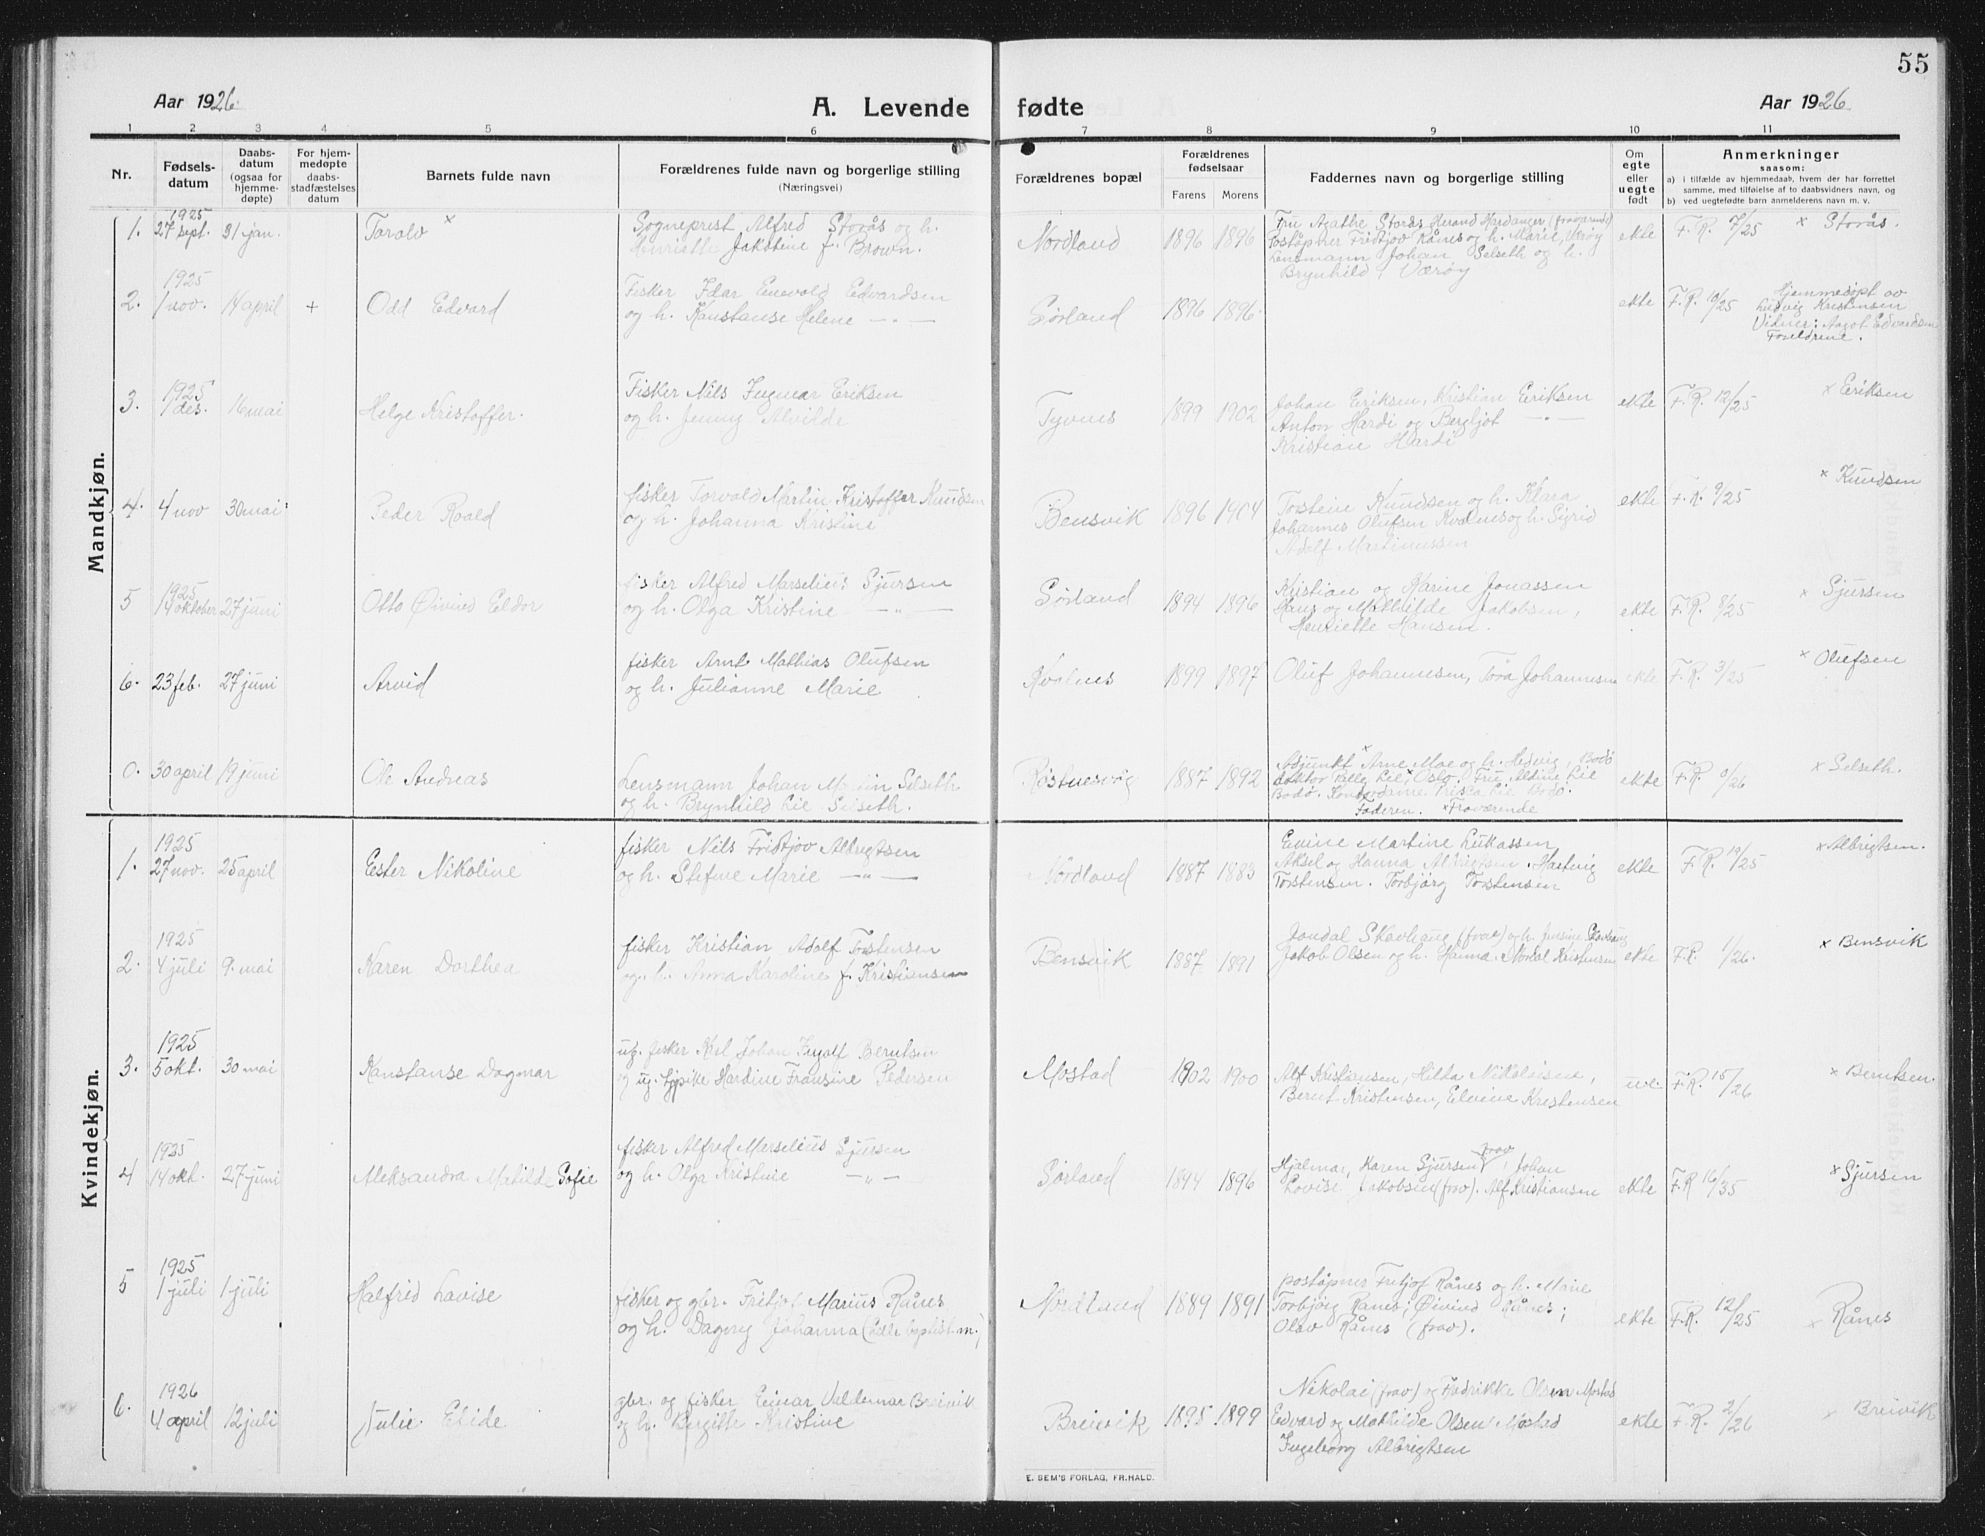 55
Aar 1926.
A. Levende fødte
Aar 1926.
1 2 3 4 5 6 7 8 9 10 11
Nr.
Fødsels-
datum
Daabs-
datum
(ogsaa for
hjemme-
døpte)
For hjem-
medøpte
daabs-
stadfæstelses
datum
Barnets fulde navn
Forældrenes fulde navn og borgerlige stilling
(Næringsvei)
Forældrenes bopæl
Forældrenes
fødselsaar
Farens Morens
Faddernes navn og borgerlige stilling
Om
egte
eller
uegte
født
Anmerkninger
saasom:
a) i tilfælde av hjemmedaab, hvem der har forrettet
samme, med tilføielse af to daabsvidners navn, og
b) ved uegtefødte barn anmelderens navn m. v.
Mandkjøn.
1. 1925 27 sept. 31 jan. Toralv x
Sogneprest Alfred Storås og h.
Henriette Jakobine f. Brown.
Nordland 1896 1896
Fru Agathe Storås Herand Hardanger (fraværende)
Poståpner Fridtjov Rånes og h. Marie, Værøy
Lensmann Johan Selseth og h.
Brynhild, Værøy
ekte F.R. 7/25 x Storås.
2. 1925 1 nov. 14 april + Odd Edvard
Fisker Idar Enevold Edvardsen
og h. Konstanse Helene — " —
Sørland 1896 1896.
ekte F.R. 10/25
Hjemmedøpt av
Ludvig Kristensen
Vidner: Aagot Edvardsen
Foreldrene.
3. 1925 1 des. 16 mai Helge Kristoffer.
Fisker Nils Ingmar Eriksen
og h. Jenny Alvilde
Tyvnes 1899 1902
Johan Eriksen, Kristian Eriksen
Anton Hardi og Bergljot — " —
Kristiane Hardi
ekte F.R. 12/25 x Eriksen
4. 4 nov 30 mai Peder Roald
fisker Torvald Martin Kristoffer Knudsen
og h. Johanna Kristine
Bensvik 1896 1904
Torstein Knudsen og h. Klara
Johannes Olufsen Kvalnes og h. Sigrid
Adolf Martinussen
ekte F.R. 9/25 x Knudsen
5 1925 14 oktober 27 juni Otto Øivind Eldor
fisker Alfred Marselius Sjursen
og h. Olga Kristine — " —
Sørland 1894 1896
Kristian og Karine Jonassen
Hans og Mathilde Jakobsen,
Henriette Hansen.
ekte F.R. 8/25 x Sjursen
6. 23 feb. 27 juni Arvid
fisker Arnt Mathias Olufsen
og h. Julianne Marie
Kvalnes 1899 1897
Oluf Johannesen, Tora Johannesen
ekte F.R. 3/25 x Olufsen
0. 30 april 19 juni Ole Andreas
Lensmann Johan Martin Selseth
og h. Brynhild Lie Selseth.
Røstnesvåg 1887 1892
Adjunkt x Arne Moe og h. Hedvig, Bodø
doktor Lie x Oslo. Fru Aldine Lie
Bodø. Lie Bodø.
Faderen. x Fraværende
ekte F.R. /26 x Selseth.
Kvindekjøn.
1. 1925 27 nov. 25 april Ester Nikoline
fisker Nils Fridtjov Albrigtsen
og h. Stefine Marie — " —
Nordland 1887 1883
Evine Martine Lukassen
Aksel og Hanna Albrigtsen. Hartvig
Torstensen. Torbjørg Torstensen
ekte F.R. 19/25 x Albrigtsen.
2. 1925 4 juli 9. mai Karen Dorthea
fisker Kristian Adolf Torstensen
og h. Anna Karoline f. Kristiansen
Bensvik 1887 1891
Jondal Skavhaug (frav) og h. Jensine Skavhaug
Jakob Olsen og h. Hanna. Kristensen
ekte F.R. 1/26. x Bensvik
3. 1925 5 okt. 30 mai Konstanse Dagmar
ug. fisker Karl Johan Ingolf Berntsen
og ug. tjpike Hardine Fransine Pedersen
Mostad 1902 1900
Alf Kristiansen, Hilda Nikolaisen,
Bernt Kristensen, Elvine Kristensen
ue. F.R. 15/26 x Berntsen.
4 1925 14 okt. 27 juni Aleksandra Matilde Sofie
fisker Alfred Marselius Sjursen
og h. Olga Kristine — " —
Sørland 1894 1896
Hjalmar, Karen Sjursen frav, Johan
Lovise Jakobsen (frav). Alf Kristiansen
ekte F.R 16/35 x Sjursen
5 1925 1 juli 1 juli Halfrid Lovise
fisker og gbr. Fritjof Marius Rånes
og h. Dagny Johanna (baptistm.)
Nordland 1889 1891
poståpner Fritjof Rånes og h. Marie
Torbjørg Rånes; Øivind Rånes;
Olav Rånes (frav).
ekte F.R. 12/25 x Rånes
6. 1926 4 april 12 juli Julie Elide
gbr. og fisker Einar Valdemar Breivik
og h. Birgitte Kristine
Breivik 1895 1899
Nikolai (frav) og Fredrikke Olsen Mostad
Edvard og Mathilde Olsen Mostad
Ingeborg Albrigtsen
ekte F.R. 2/26 x Breivik
E. SEM'S FORLAG, FR.HALD.